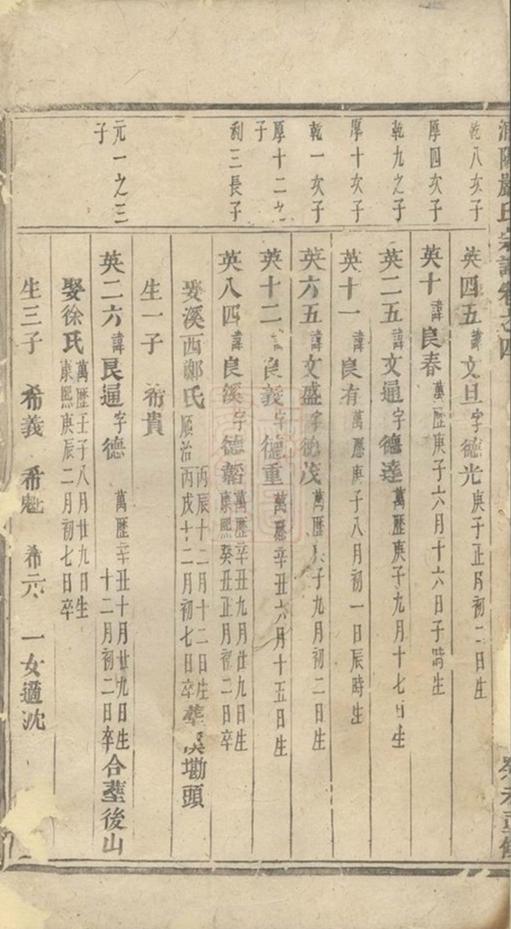 氏宗譜卷之四
乾八次子
英四五諱文旦字德光庚子正月初二日生
厚四次子
英十諱良春萬歷庚子六月十六日子時生
乾九之子
英二五諱文通字德達萬歷庚子九月十七日生
厚十次子
英十一諱良有萬歷庚子八月初一日辰時生
乾一次子
英六五諱文盛字德茂萬歷子九月初二日生
厚十二之子
英十二良義字德重萬歷辛丑六月十五日生
利三長子
英八四諱良溪字德韜萬歷辛丑九月廿九日生
康熙癸丑正月初二日卒
娶溪西鄭氏丙辰十二月十二日生
順治丙戌十二月初七日卒葬塘頭
生一子 希貴
元一之三子
英二六諱良通字德 萬歷辛丑十月廿九日生
十二月初二日卒合葬後山
娶徐氏萬歷壬子八月廿九日生
康熙庚辰二月初七日卒
生三子 希義 希魁 希元 一女適沈